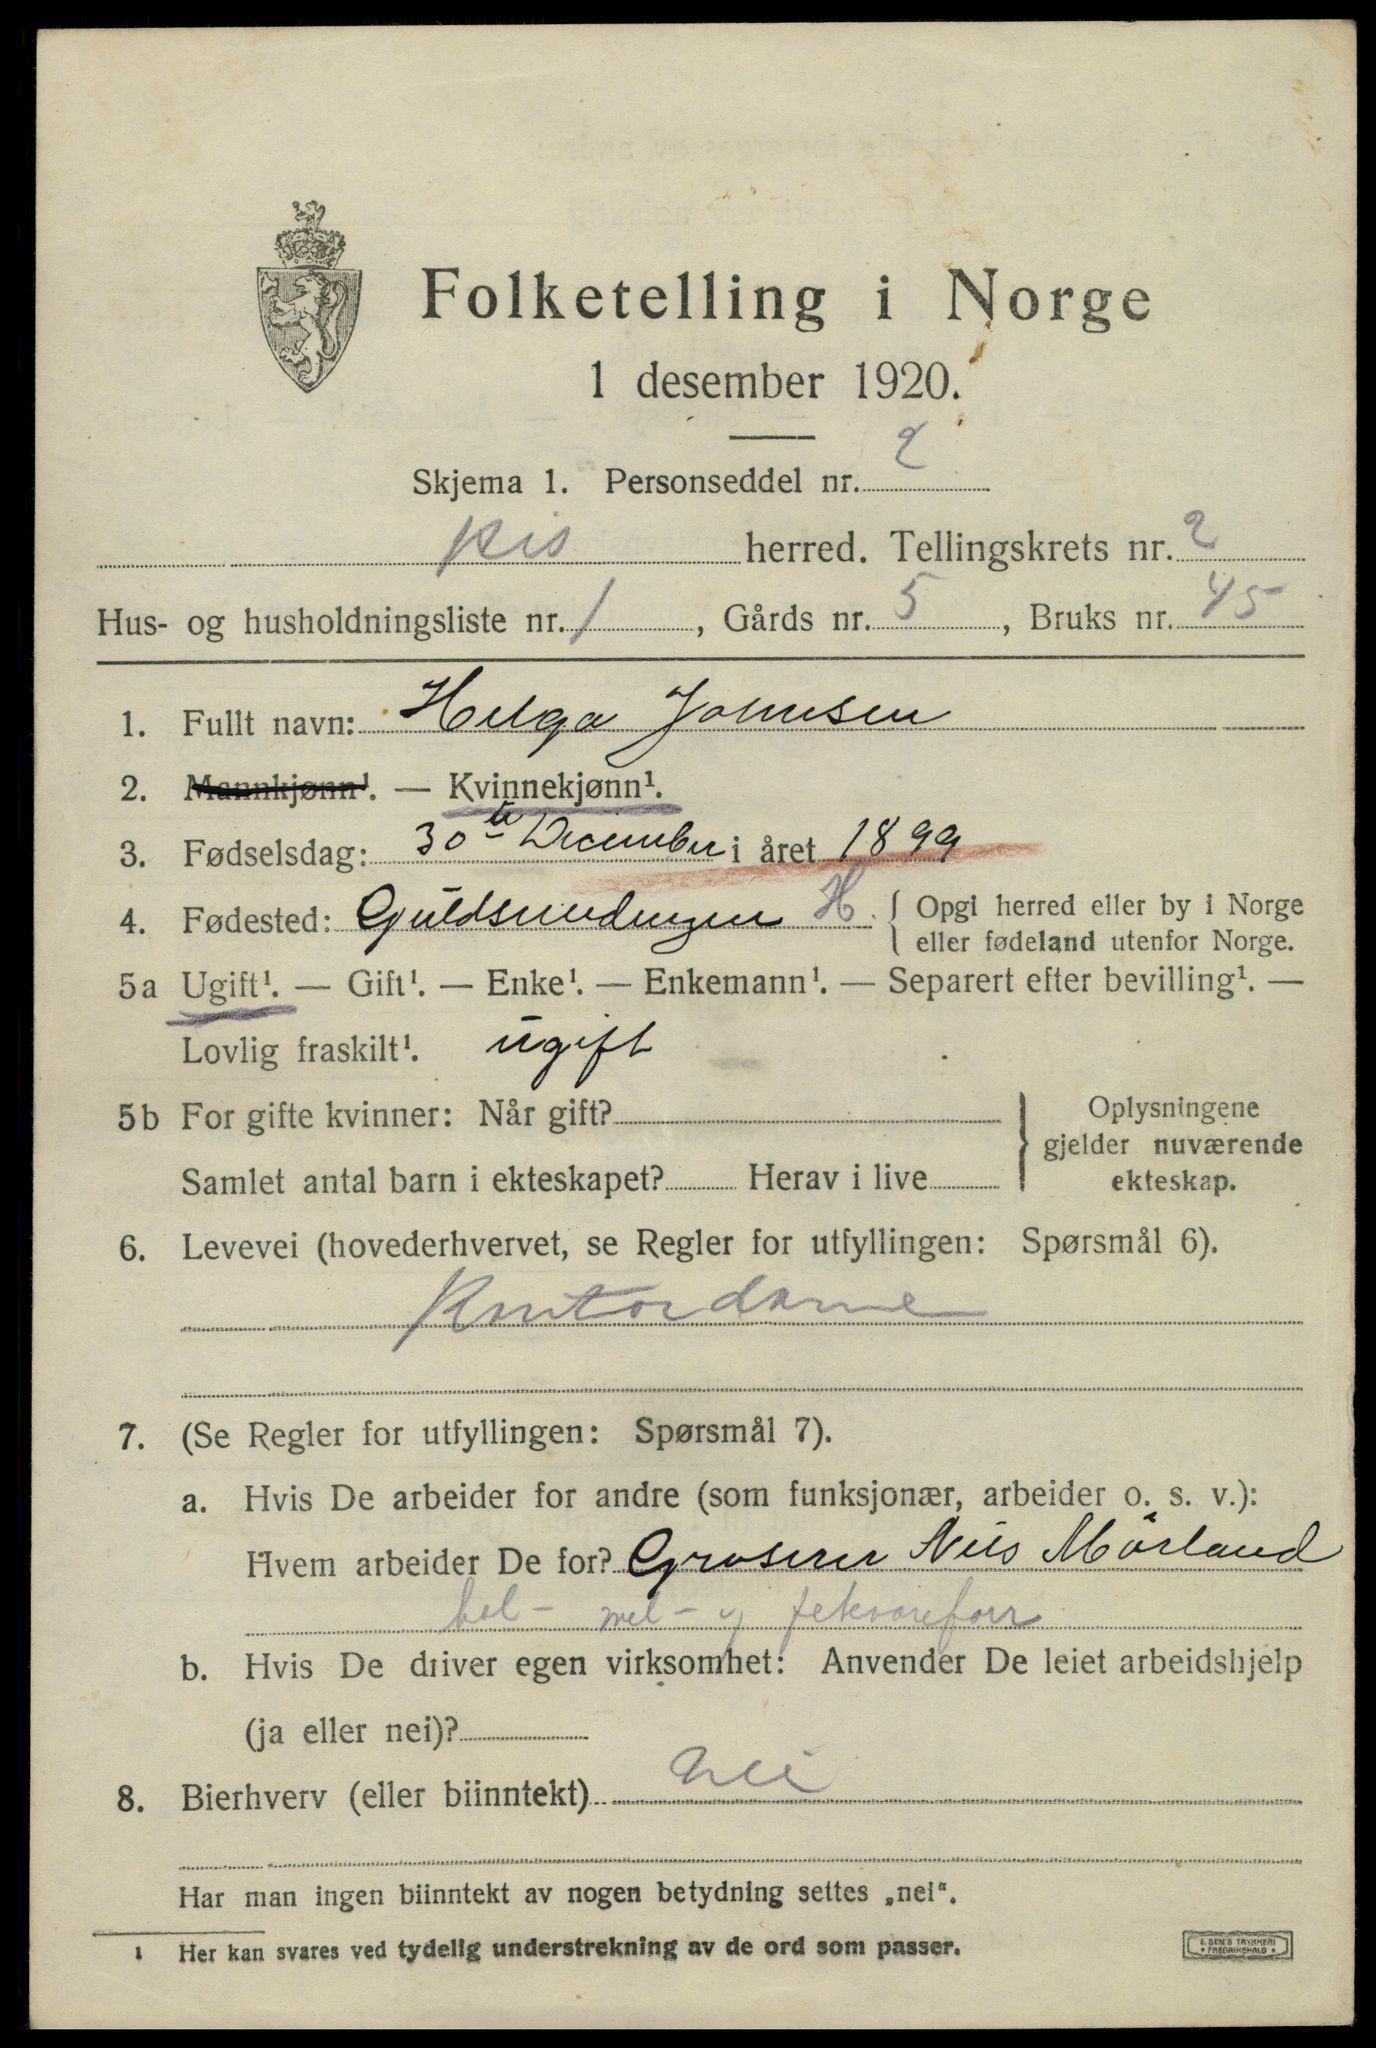 Folketelling i Norge
1 desember 1920.
Skjema 1. Personseddel nr. 2
herred. Tellingskrets nr. 2
Hus- og husholdningsliste nr. 1, Gårds nr. 5, Bruks nr. 45
1. Fullt navn: Helga Johnsen
2. Mannkjønn¹. — Kvinnekjønn¹.
3. Fødselsdag: 30te December i året 1899
4. Fødested: Guldsmedengen H. { Opgi herred eller by i Norge
eller fødeland utenfor Norge.
5a Ugift¹. — Gift¹. — Enke¹. — Enkemann¹. — Separert efter bevilling¹. —
Lovlig fraskilt¹. ugift
5b For gifte kvinner: Når gift? } Oplysningene
gjelder nuværende
Samlet antal barn i ekteskapet? Herav i live ekteskap.
6. Levevei (hovederhvervet, se Regler for utfyllingen: Spørsmål 6).
Kontordame
7. (Se Regler for utfyllingen: Spørsmål 7).
a. Hvis De arbeider for andre (som funksjonær, arbeider o. s. v.):
Hvem arbeider De for? Groserer Nils Mörland
kol- mel- og fetevareforr
b. Hvis De driver egen virksomhet: Anvender De leiet arbeidshjelp
(ja eller nei)?
8. Bierhverv (eller biinntekt) nei
Har man ingen biinntekt av nogen betydning settes „nei“.
1 Her kan svares ved tydelig understrekning av de ord som passer.
E. SEM'S TRYKKERI
FREDRIKSHALD